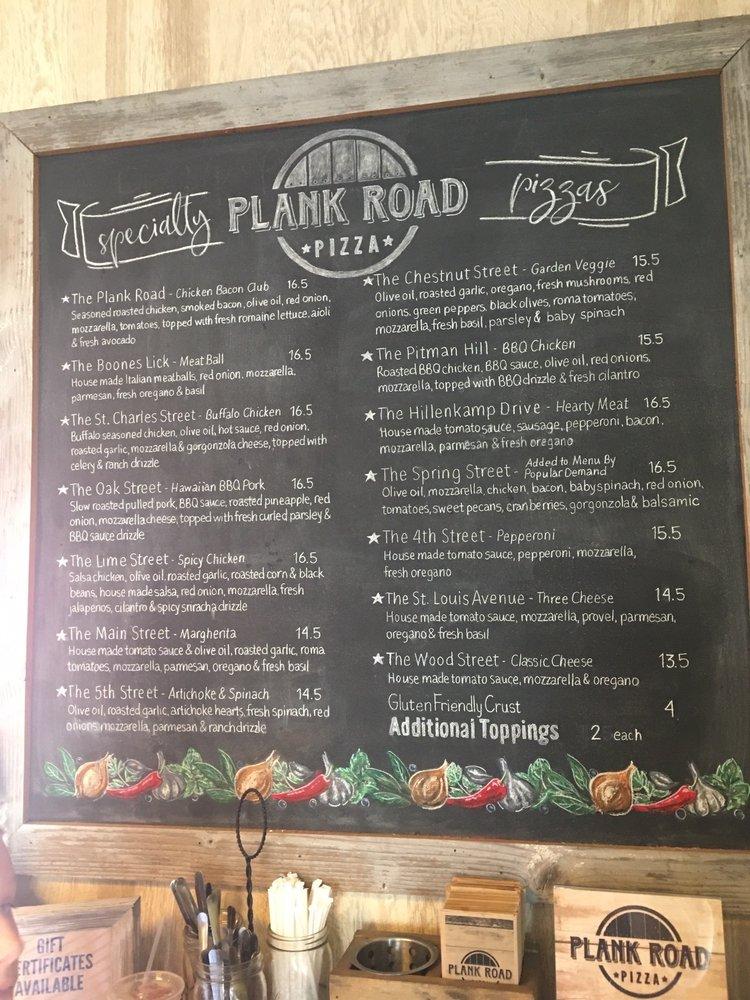 specialty
PLANK ROAD
PIZZA
pizzas
The Plank Road - Chicken Bacon Club 16.5
Seasoned roasted chicken, smoked bacon, olive oil, red onion,
mozzarella, tomatoes, topped with fresh romaine lettuce, aioli
& fresh avocado
The Boones Lick - Meat Ball 16.5
House made Italian meatballs, red onion, mozzarella,
parmesan, fresh oregano & basil
The St. Charles Street - Buffalo Chicken 16.5
Buffalo seasoned chicken, olive oil, hot sauce, red onion,
roasted garlic, mozzarella & gorgonzola cheese, topped with
celery & ranch drizzle
The Oak Street - Hawaiian BBQ Pork 16.5
Slow roasted pulled pork, BBQ sauce, roasted pineapple, red
onion, mozzarella cheese, topped with fresh curled parsley &
BBQ sauce drizzle
The Lime Street - Spicy Chicken 16.5
Salsa chicken, olive oil, roasted garlic, roasted corn & black
beans, house made salsa, red onion, mozzarella, fresh
jalapenos, cilantro & spicy sriracha drizzle
The Main Street - Margherita 14.5
House made tomato sauce & olive oil, roasted garlic, roma
tomatoes, mozzarella, parmesan, oregano & fresh basil
The 5th Street - Artichoke & Spinach 14.5
Olive oil, roasted garlic, artichoke hearts, fresh spinach, red
onions mozzarella, parmesan & ranch drizzle
The Chestnut Street - Garden Veggie 15.5
Olive oil, roasted garlic, oregano, fresh mushrooms, red
onions, green peppers, black olives, roma tomatoes,
mozzarella, fresh basil, parsley & baby spinach
The Pitman Hill - BBQ Chicken 15.5
Roasted BBQ chicken, BBQ sauce, olive oil, red onions,
mozzarella, topped with BBQ drizzle & fresh cilantro
The Hillenkamp Drive - Hearty Meat 16.5
House made tomato sauce, sausage, pepperoni, bacon,
mozzarella, parmesan & fresh oregano
The Spring Street - Added to Menu By Popular Demand 16.5
Olive oil, mozzarella, chicken, bacon, baby spinach, red onion,
tomatoes, sweet pecans, cranberries, gorgonzola & balsamic
The 4th Street - Pepperoni 15.5
House made tomato sauce, pepperoni, mozzarella,
fresh oregano
The St. Louis Avenue - Three Cheese 14.5
House made tomato sauce, mozzarella, provel, parmesan,
oregano & fresh basil
The Wood Street - Classic Cheese 13.5
House made tomato sauce, mozzarella & oregano
Gluten Friendly Crust 4
Additional Toppings 2 each
GIFT
CERTIFICATES
AVAILABLE
PLANK ROAD
PIZZA
PLANK ROAD
PIZZA